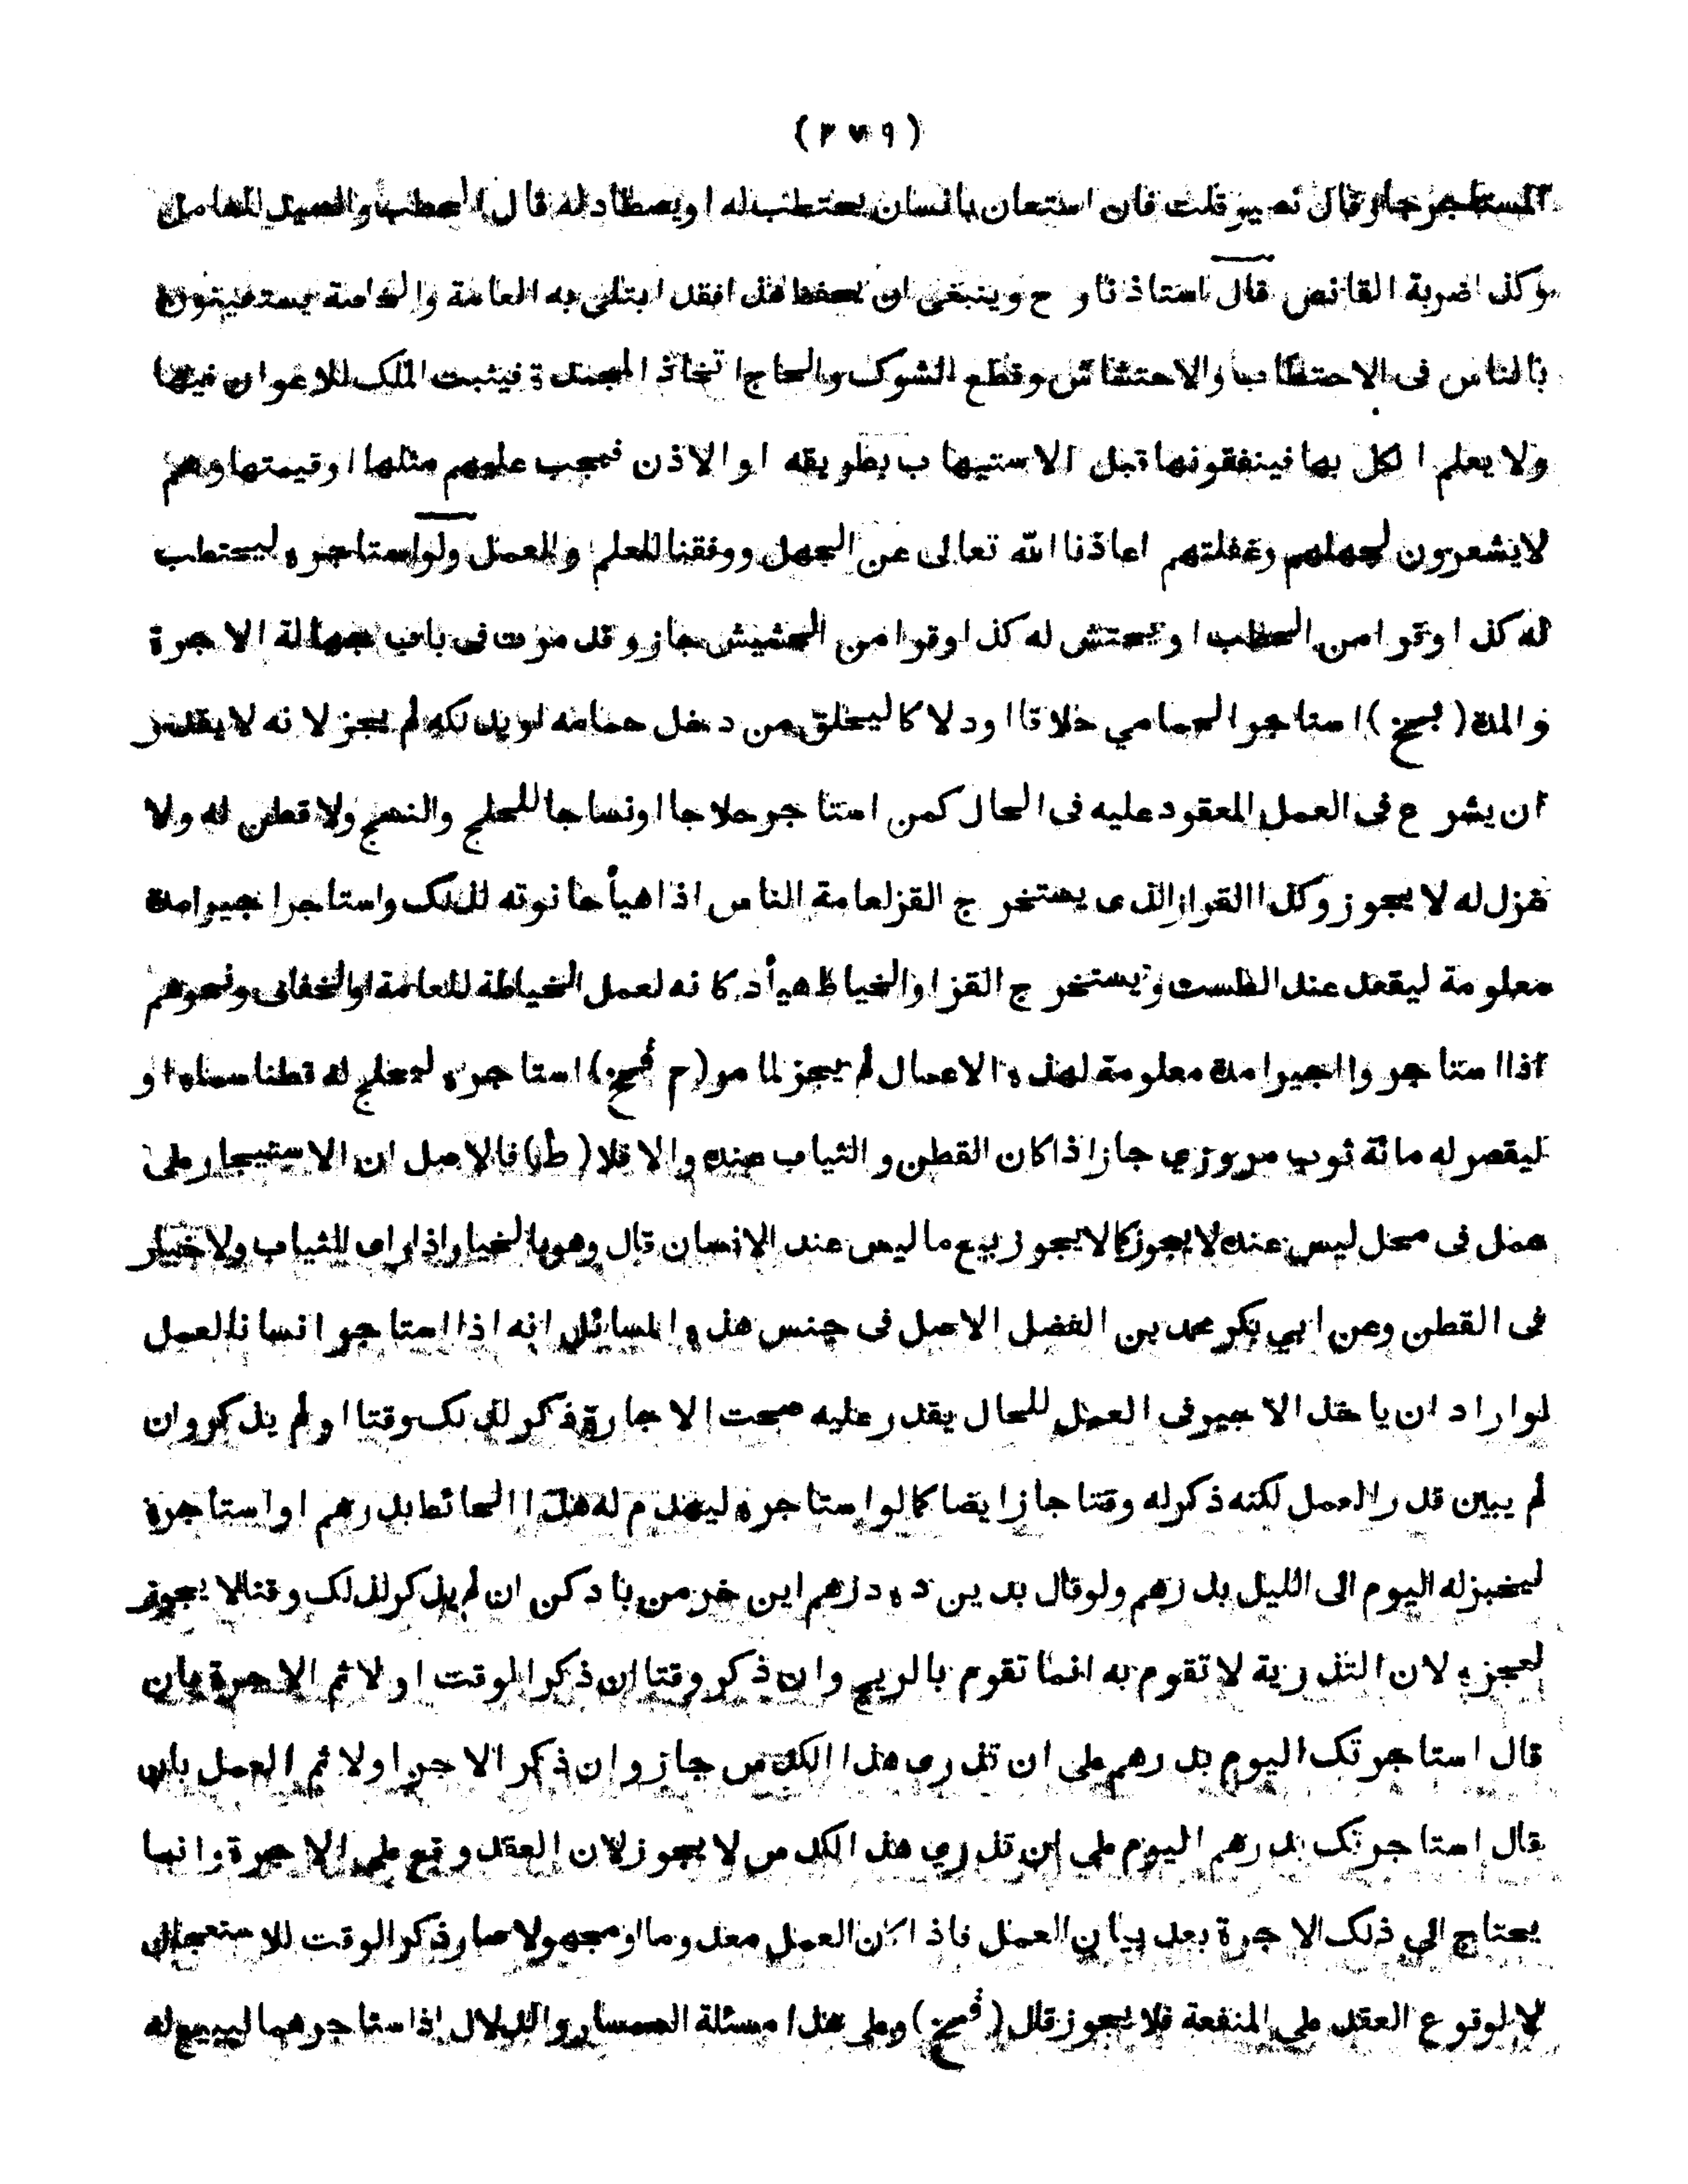 (٢٧٩)
المستاجر جاز وقال نصير قلت فان استعان بانسان يحتطب له او يصطاد له قال الحطب والصيد للعامل
وكذا ضربة القانص قال استاذنا رح وينبغى ان يحفظ هذا فقد ابتلى به العامة والخاصة يستعينون
بالناس فى الاحتطاب والاحتشاش وقطع الشوك والحاج اتخاذ المجمدة فيثبت الملك للاعوان فيها
ولا يعلم الكل بها فينفقونها قبل الاستيهاب بطريقه او الاذن فيجب عليهم مثلها او قيمتها وهم
لا يشعرون لجهلهم وغفلتهم اعاذنا الله تعالى عن الجهل ووفقنا للعلم والعمل ولو استاجره ليحتطب
له كذا وقرا من الحطب او يحتش له كذا وقرا من الحشيش جاز وقد مرت فى باب جهالة الاجرة
والمدة (بمخ) استاجر الحمامي حلاقا او دلاكا ليحلق من دخل حمامه او يدلكه لم يجز لانه لا يقدر
ان يشرع فى العمل المعقود عليه فى الحال كمن استاجر حلاجا او نساجا للحلج والنسج ولا قطن له ولا
غزل له لا يجوز وكذا القزاز الذى يستخرج القز لعامة الناس اذا هيأ حانوته لذلك واستاجر اجيرا مدة
معلومة ليقعد عند الطست ويستخرج القز او الخياط هيأ دكانه لعمل الخياطة للعامة او الخفاف ونحوهم
اذا استاجروا اجيرا مدة معلومة لهذه الاعمال لم يجز لما مر (م قمخ) استاجره ليحلج له قطنا سماه او
ليقصر له مائة ثوب مروزي جاز اذا كان القطن و الثياب عنده والا فلا (ط) فالاصل ان الاستيجار على
عمل فى محل ليس عنده لا يجوز كما لا يجوز بيع ما ليس عند الانسان قال وهو بالخيار اذا راى الثياب ولا خيار
فى القطن وعن ابي بكر محمد بن الفضل الاصل فى جنس هذه المسائل انه اذا استاجر انسانا لعمل
لو اراد ان ياخذ الاجير فى العمل للحال يقدر عليه صحت الاجارة ذكر لذلك وقتا او لم يذكر وان
لم يبين قدر العمل لكنه ذكر له وقتا جاز ايضا كما لو استاجره ليهدم له هذا الحائط بدرهم او استاجره
ليخبز له اليوم الى الليل بدرهم ولو قال بدين ده درهم اين خرمن باد كن ان لم يذكر لذلك وقتا لا يجوز
لعجزه لان التذرية لا تقوم به انما تقوم بالريح وان ذكر وقتا ان ذكر الوقت اولا ثم الاجرة بان
قال استاجرتك اليوم بدرهم على ان تذرى هذا الكدس جاز وان ذكر الاجر اولا ثم العمل بان
قال استاجرتك بدرهم اليوم على ان تذري هذا الكدس لا يجوز لان العقد وقع على الاجرة وانما
يحتاج الى ذلك الاجرة بعد بيان العمل فاذا كان العمل معدوما او مجهولا صار ذكر الوقت للاستعجال
لا لوقوع العقد على المنفعة فلا يجوز قال (قمخ) وعلى هذا مسئلة السمسار والدلال اذا استاجرهما ليبيع له